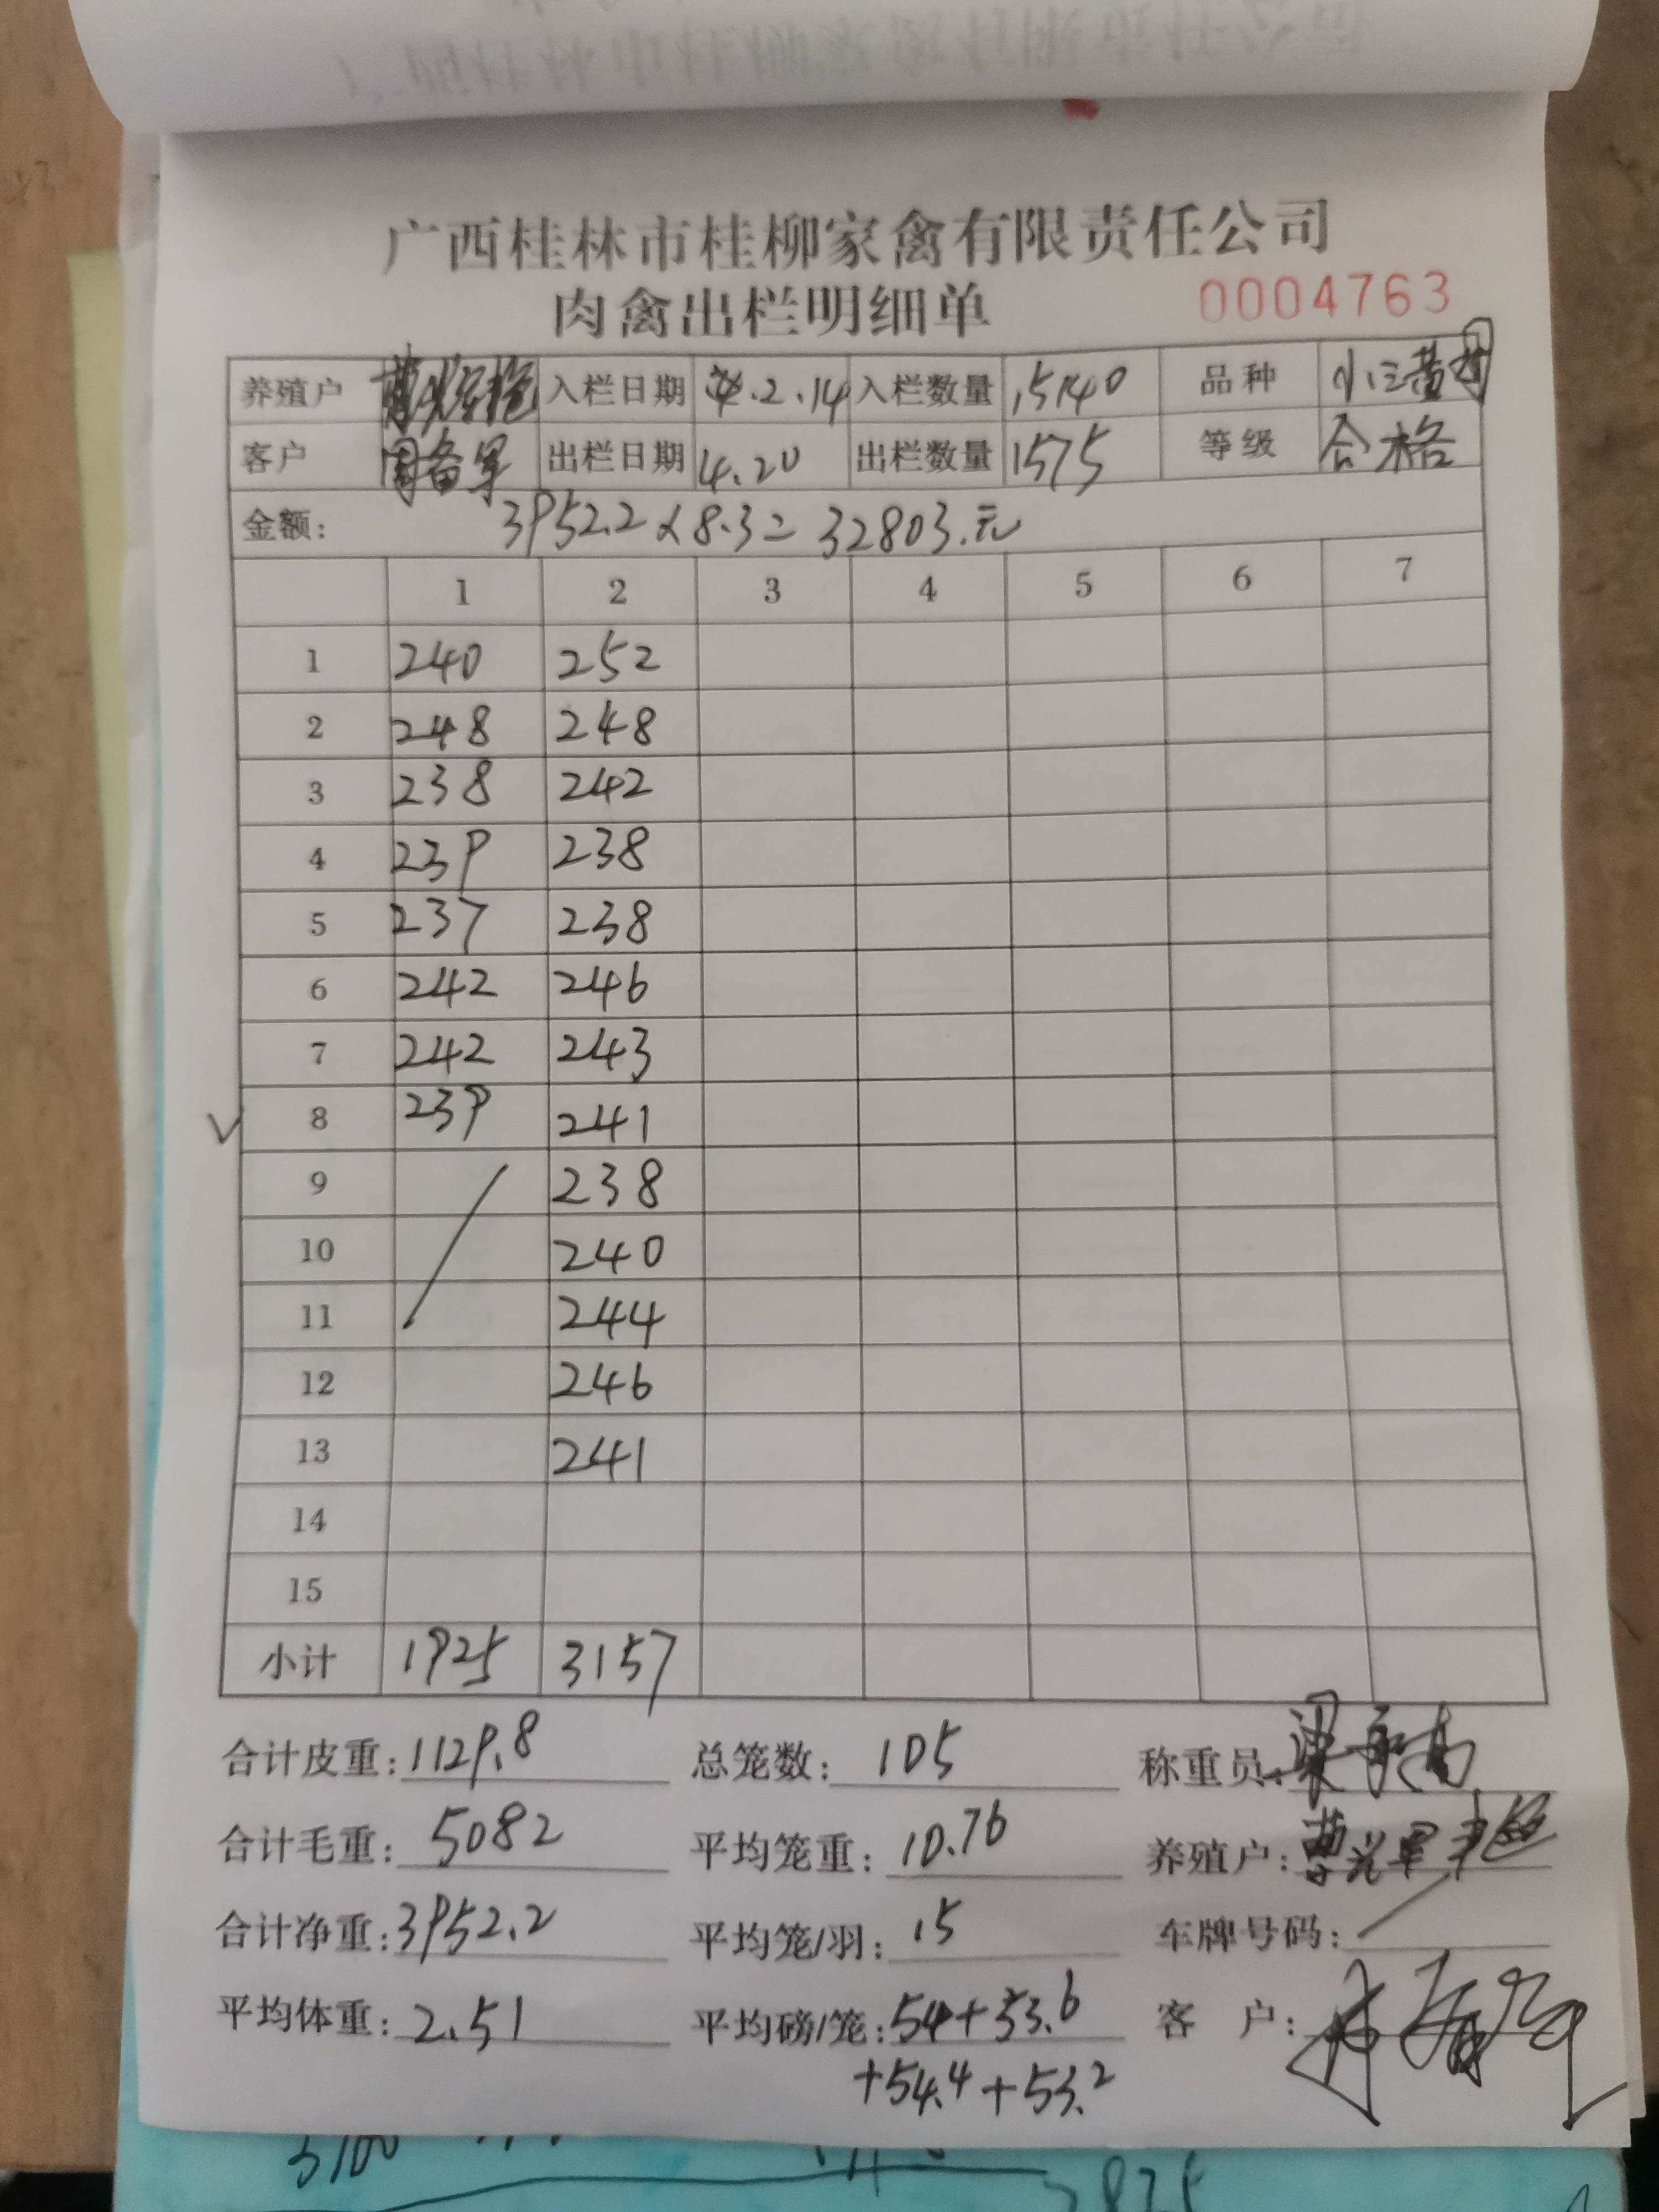 广西桂林市桂柳家禽有限责任公司
肉禽出栏明细单 0004763
养殖户 入栏日期 2.14 入栏数量 15140 品种 小三黄
客户 周备军 出栏日期 4.20 出栏数量 1575 等级 合格
金额: 3952.2×8.3=32803.元
1 2 3 4 5 6 7
1 240 252
2 248 248
3 238 242
4 239 238
5 237 238
6 242 246
7 242 243
√ 8 239 241
9 238
10 240
11 244
12 246
13 241
14
15
小计 1925 3157
合计皮重: 1129.8 总笼数: 105 称重员:
合计毛重: 5082 平均笼重: 10.76 养殖户:
合计净重: 3952.2 平均笼/羽: 15 车牌号码:
平均体重: 2.51 平均磅/笼: 54+53.6 客户:
+54.4+53.2